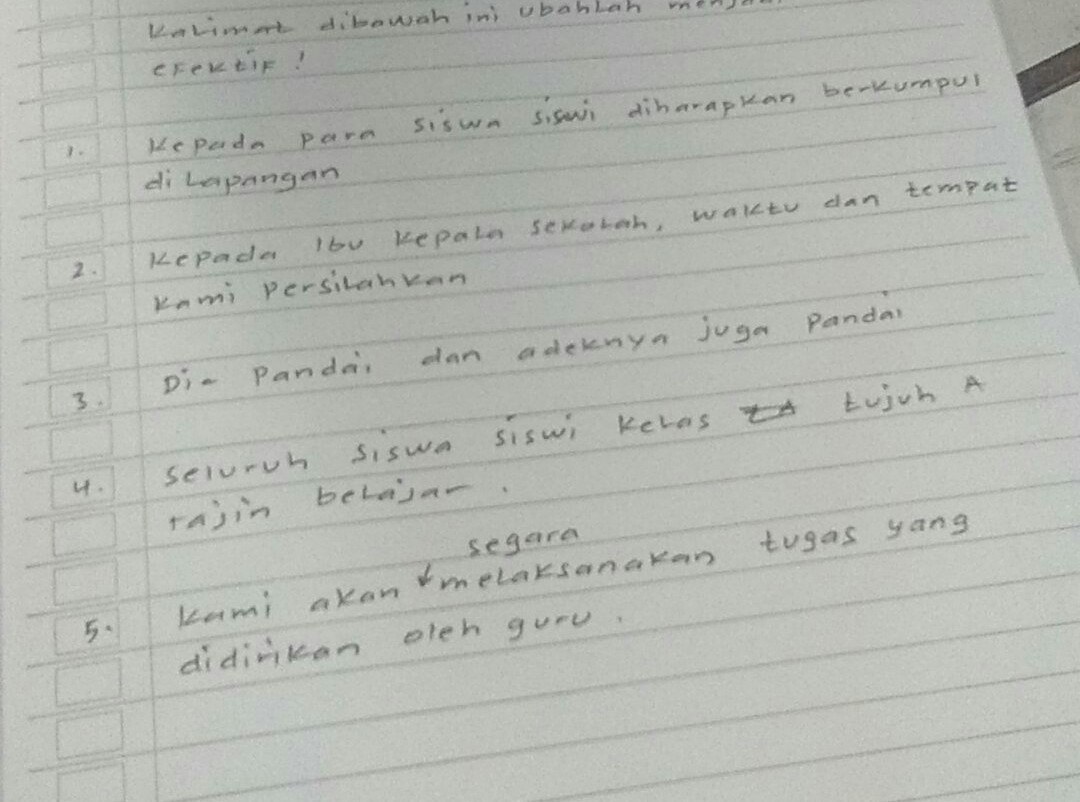 Kalimat dibawah ini ubahlah
efektif !
1. Kepada para siswa siswi diharapkan berkumpul
di Lapangan
2. Kepada Ibu Kepala sekolah, waktu dan tempat
kami Persilahkan
3. Dia Pandai dan adeknya juga Pandai
4. Seluruh siswa siswi kelas tujuh A
rajin belajar.
segara
5. Kami akan melaksanakan tugas yang
didirikan oleh guru.